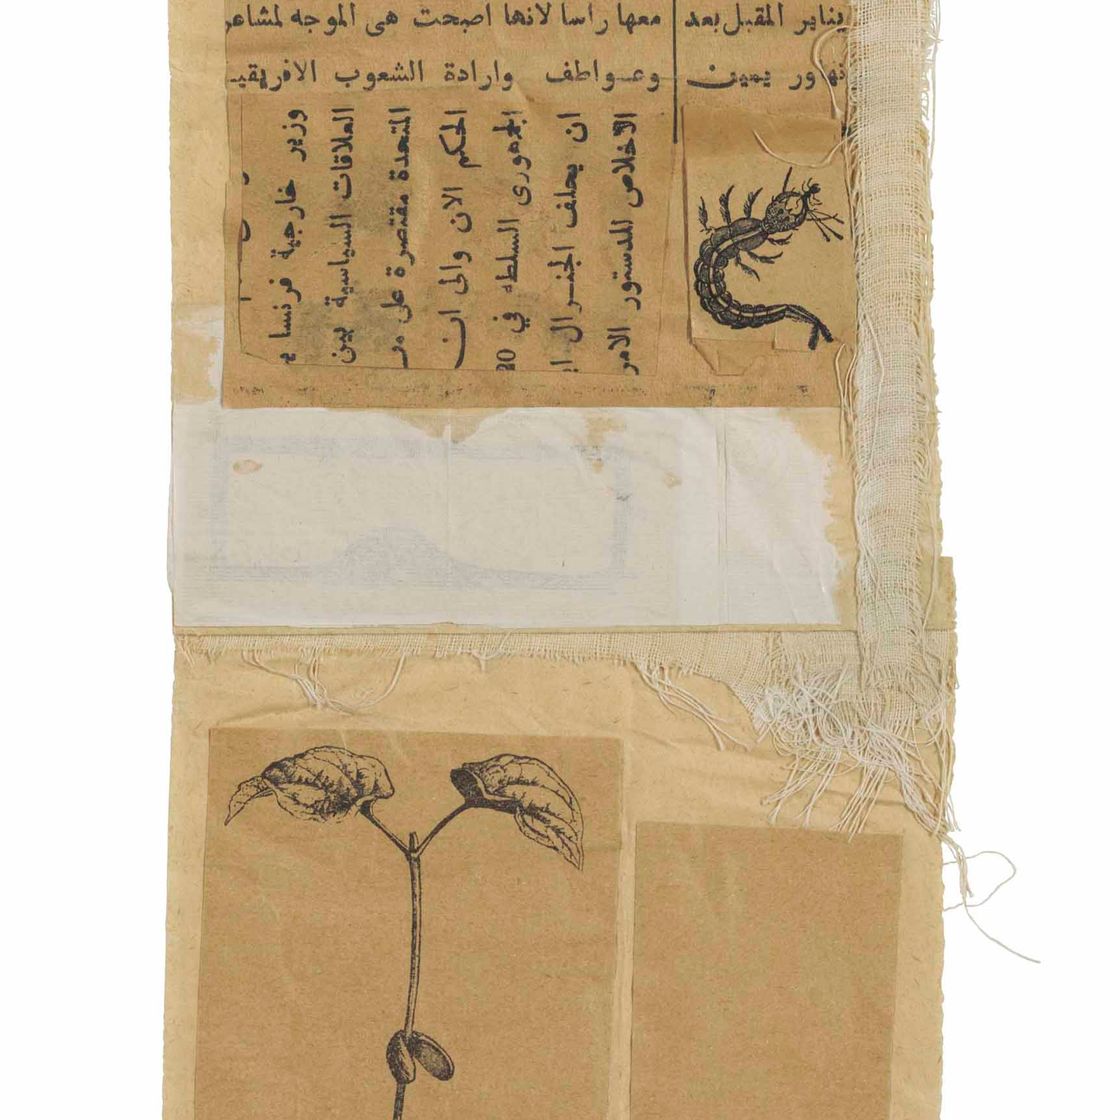 معها راسا لانها اصبحت هى الموجه لمشاعر
وعواطف وارادة الشعوب الافريقيـ
يناير المقبل بعد
يمين
وزير خارجية فرنسا
العلاقات السياسية بين
المتحدة مقتصرة على
الحكم الان والى ان
الجمهورى السلطه في 20
ان يحلف الجنرال
الاخلاص للدستور الامر